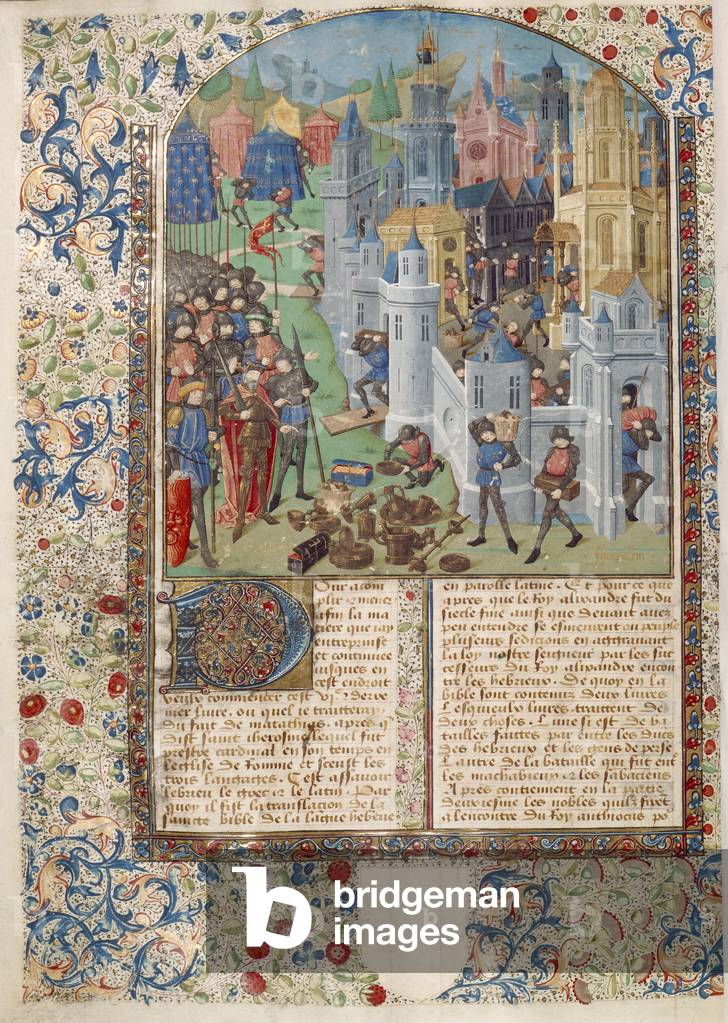 Our acom
plir et metre
a fin la ma
tiere que iay
entreprinse
et continuee
iusques en
cest endroit
vueil commencier cest vi.e et derre
nier liure. ou quel ie traitteray
du fait de
dist saint Iherosme lequel fut
prestre cardinal en son temps en
leglise de Romme et sceust les
trois langaiges. Cest assauoir
lebrieu le grec et le latin. Par
quoy il fist la translacion de la
saincte bible de la lague hebrieu
en parolle latine. Et pour ce que
apres que le Roy alixandre fut du
siecle finé ainsi que deuant auez
peu entendre se esmeurent ou peuple
plusieurs sedicions en aggrauant
la loy nostre seigneur par les suc
cesseurs du Roy alixandre encon
tre les hebrieux. De quoy en la
bible sont contenuz deux liures
Lesquieulx liures traittent de
deux choses. Lune si est de ba
tailles faittes par entre les ducs
des hebrieux et les gens de perse
Lautre de la bataille qui fut ent
les machabieux et les
Apres contiennent en la partie
deuxiesme les nobles quilz firet
a lencontre du Roy anthiocus po
b bridgeman
images